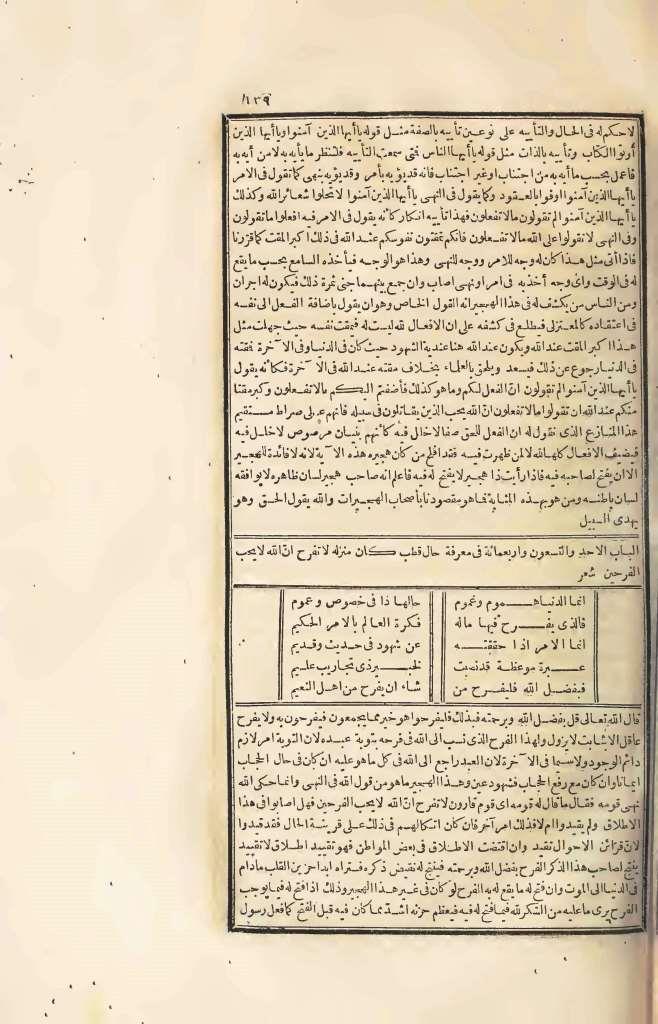 ١٣٩
لاحكم له فى الحال والتأييه على نوعين تأييه بالصفة مثل قوله يا أيها الذين آمنوا ويا أيها الذين
أوتوا الكتاب وتأييه بالذات مثل قوله يا أيها الناس فتى سمعت التأييه فلتنظر ما يأيه به لا من أيه به
فاعمل بحسب ما أيه به من اجتناب وغير اجتناب فانه قد يؤيه بأمر وقد يؤيه بنهى كما تقول فى الامر
يا أيها الذين آمنوا أوفوا بالعقود وكما يقول فى النهى يا أيها الذين آمنوا لا تحلوا شعائر الله وكذلك
يا أيها الذين آمنوا لم تقولون مالا تفعلون فهذا تأييه انكار كأنه يقول فى الامر فيه افعلوا ما تقولون
وفى النهى لا تقولوا على الله مالا تفعلون فانكم تمقتون نفوسكم عند الله فى ذلك اكبر المقت كما قررنا
فاذا أتى مثل هذا كان له وجه للامر ووجه للنهى وهذا هو الوجه فيأخذه السامع بحسب ما يقع
له فى الوقت وأى وجه أخذ به فى امر او نهى اصاب وان جمع بينهما جنى ثمرة ذلك فيكون له اجران
ومن الناس من يكشف له فى هذا الهجير انه القول الخاص وهو ان يقول باضافة الفعل الى نفسه
فى اعتقاده كالمعتزلى فيطلع فى كشفه على ان الافعال لله ليست له فيمقت نفسه حيث جهلت مثل
هذا اكبر المقت عند الله ويكون عند الله هنا عندية الشهود حيث كان فى الدنيا وفى الآخرة فمقته
فى الدنيا رجوع عن ذلك فيسعد ويلحق بالعلماء بخلاف مقته عند الله فى الآخرة فكأنه يقول
يا أيها الذين آمنوا لم تقولون ان الفعل لكم وما هو كذلك فأضفتم اليكم مالا تفعلون وكبر مقتا
منكم عند الله ان تقولوا مالا تفعلون ان الله يحب الذين يقاتلون فى سبيله فانهم على صراط مستقيم
هذا المنازع الذى نقول له ان الفعل للحق صفا لا خال فيه كأنهم بنيان مرصوص لا خلل فيه
فيضيف الافعال كلها لله لا لمن ظهرت فيه فقد افلح من كان هجيره هذه الآية لانه لا فائدة للهجير
الا ان يفتح لصاحبه فيه فاذا رأيت ذا هجير لا يفتح له فيه فاعلم انه صاحب هجير لسان ظاهره لا يوافقه
لسان باطنه ومن هو بهذه المثابة فما هو مقصودنا بأصحاب الهجيرات والله يقول الحق وهو
يهدى السبيل
الباب الاحد والتسعون واربعمائة فى معرفة حال قطب كان منزله لا تفرح ان الله لا يحب
الفرحين شعر
انما الدنيا هموم وغموم حالها ذا فى خصوص وعموم
فالذى يفرح فيها ماله فكرة العالم بالامر الحكيم
انما الامر اذا حققته عن شهود فى حديث وقديم
عبرة موعظة قد نصبت لخبير ذى تجاريب عليم
فبفضل الله فليفرح من شاء ان يفرح من اهل النعيم
قال الله تعالى قل بفضل الله وبرحمته فبذلك فليفرحوا هو خير مما يجمعون فيفرحون به ولا يفرح
عاقل الا بثابت لا يزول ولهذا الفرح الذى نسب الى الله فى فرحه بتوبة عبده لان التوبة امر لازم
دائم الوجود ولاسيما فى الآخرة لان العبد راجع الى الله فى كل ما هو عليه ان كان فى حال الحجاب
ايمانا وان كان مع رفع الحجاب فشهود عين وهذا الهجير ما هو من قول الله فى النهى وانما حكى الله
نهى قومه فقال ما قال له قومه اى قوم قارون لا تفرح ان الله لا يحب الفرحين فهل اصابوا فى هذا
الاطلاق ولم يقيدوا ام لا فذلك امر آخر فان كان اتكالهم فى ذلك على قرينة الحال فقد قيدوا
لان قرائن الاحوال تقيد وان اقتضت الاطلاق فى بعض المواطن فهو تقييد اطلاق لا تقييد
يفتح لصاحب هذا الذكر الفرح بفضل الله وبرحمته فيفتح له نقيض ذكره فتراه ابدا حزين القلب مادام
فى الدنيا الى الموت وان فتح له ما يقع له به الفرح لو كان فى غير هذا الهجير وذلك اذا فتح له فيما يوجب
الفرح يرى ما عليه من الشكر لله فيما فتح له فيه فيعظم حزنه اشد مما كان فيه قبل الفتح كما فعل رسول